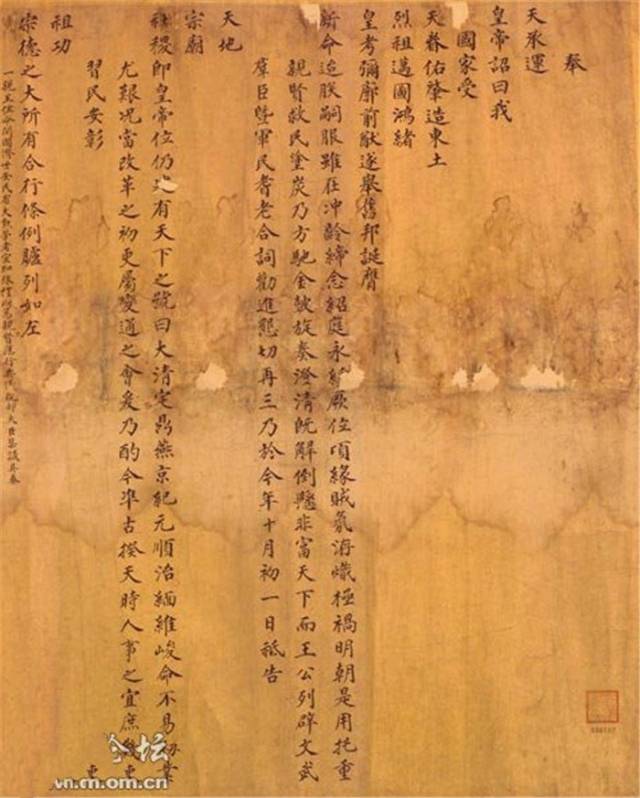 奉
天承運
皇帝詔曰我
國家受
天眷佑肇造東土
烈祖邁圖鴻緒
皇考彌廓前猷遂舉舊邦誕膺
新命迨朕嗣服雖在沖齡締念紹庭永綏厥位項緣賊氛洊熾極禍明朝是用托重
親賢救民塗炭乃方馳金鼓旋奏澄清既解倒懸非富天下而王公列辟文武
羣臣暨軍民耆老合詞勸進懇切再三乃於今年十月初一日祗告
天地
宗廟
社稷即皇帝位仍建有天下之號曰大清定鼎燕京紀元順治緬維峻命不易創業
尤艱況當改革之初更屬變通之會爰乃酌今準古揆天時人事之宜庶幾吏
習民安彰
祖功
宗德之大所有合行條例臚列如左
一親王佐命開國濟世安民有大勳勞者宜加殊禮以篤親賢應行事宜該部大臣集議具奏
論坛
vn.m.om.cn